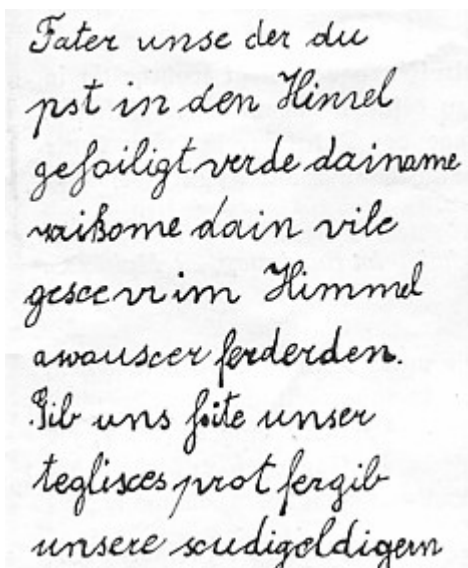 Fater unse der du
pst in den Himel
gehailigt verde dainame
raikome dain vile
gesce vi im Himmel
awauscer ferderden.
Gib uns hoite unser
teglisces prot fergib
unsere scudigeldigern